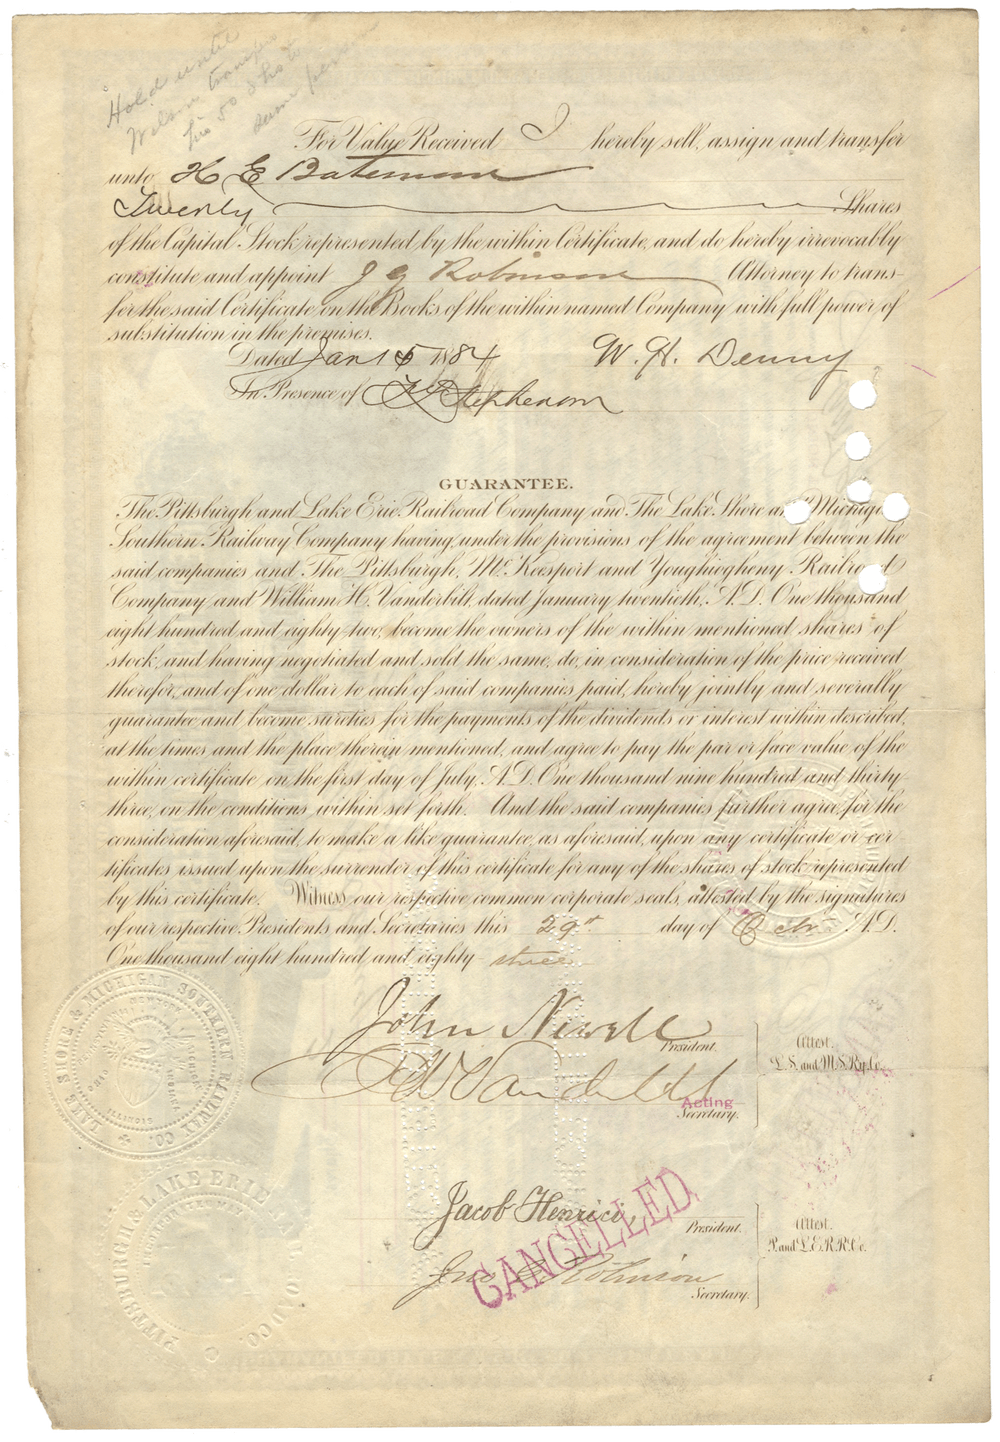 Hold until
Wilson transfers
his 50 shs to
same person
For Value Received I hereby sell, assign and transfer
unto H E Bateman
Twenty Shares
of the Capital Stock represented by the within Certificate, and do hereby irrevocably
constitute and appoint J G Robinson Attorney to trans-
fer the said Certificate on the Books of the within named Company with full power of
substitution in the premises.
Dated Jan 15 1884 W. H. Denny
In Presence of Stephenson
GUARANTEE.
The Pittsburgh and Lake Erie Railroad Company and The Lake Shore and Michigan
Southern Railway Company having, under the provisions of the agreement between the
said companies and The Pittsburgh, McKeesport and Youghiogheny Railroad
Company and William H. Vanderbilt, dated January twentieth, A.D. One thousand
eight hundred and eighty-two, become the owners of the within mentioned shares of
stock, and having negotiated and sold the same, do, in consideration of the price received
therefor, and of one dollar to each of said companies paid, hereby jointly and severally
guarantee and become sureties for the payments of the dividends or interest within described,
at the times and the place therein mentioned, and agree to pay the par or face value of the
within certificate on the first day of July, A.D. One thousand nine hundred and thirty-
three, on the conditions within set forth. And the said companies further agree, for the
consideration aforesaid, to make a like guarantee, as aforesaid, upon any certificate or cer-
tificates issued upon the surrender of this certificate for any of the shares of stock represented
by this certificate. Witness our respective common corporate seals, attested by the signatures
of our respective Presidents and Secretaries this 29th day of Octr A.D.
One thousand eight hundred and eighty-three
John Newell
President.
Attest.
L.S. and M.S. Ry. Co.
Vanderbilt
Acting
Secretary.
LAKE SHORE & MICHIGAN SOUTHERN RAILWAY CO.
ILLINOIS
Jacob Henrici,
President.
Attest.
P. and L.E. R.R. Co.
Jno G Robinson
Secretary.
CANCELLED
PITTSBURGH & LAKE ERIE RAILROAD CO.